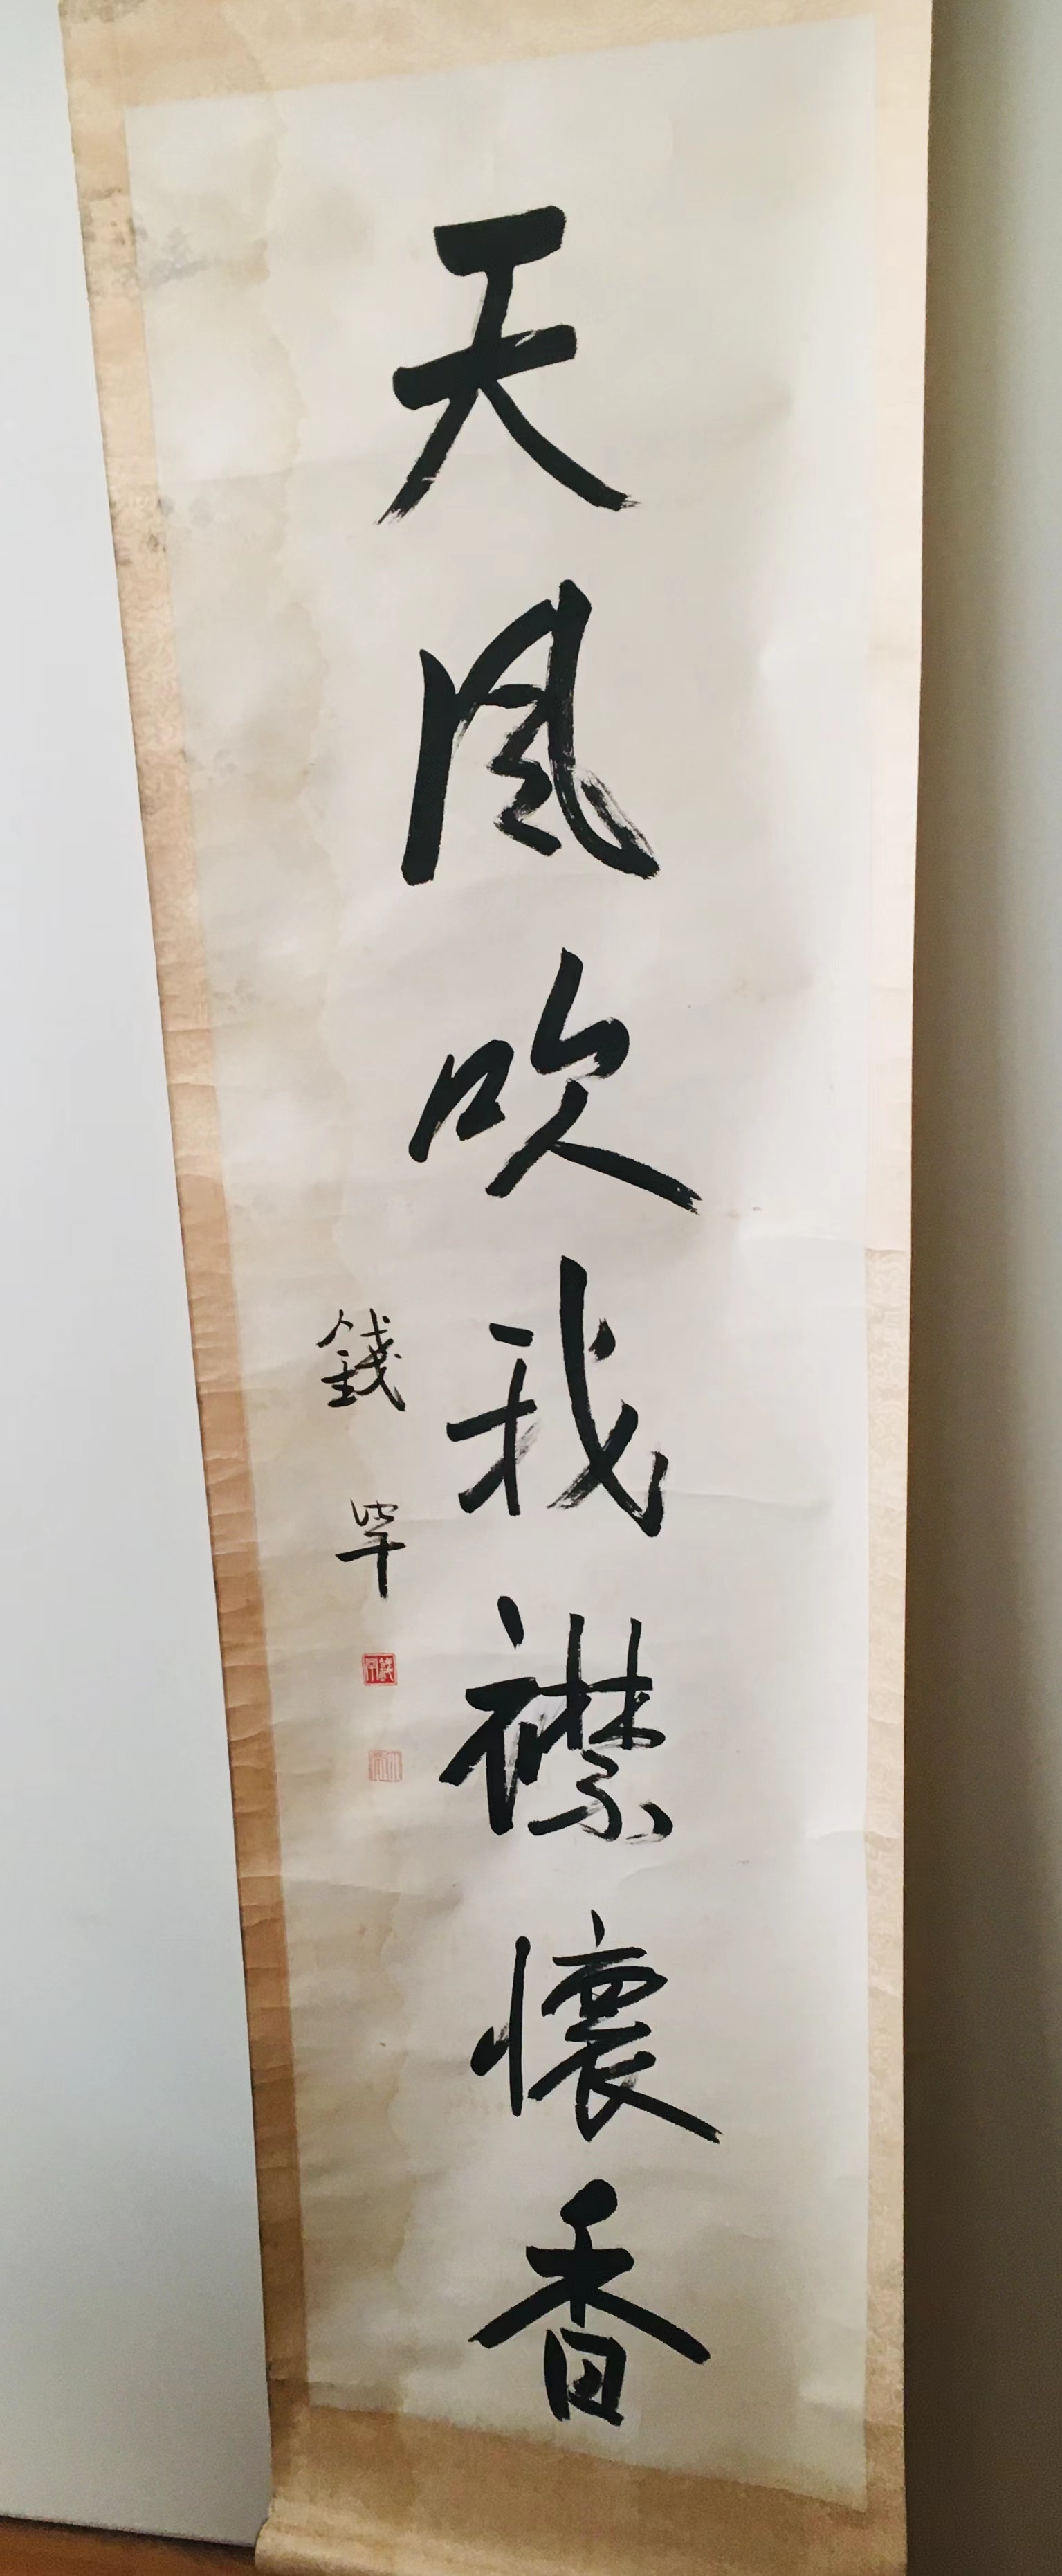 天風吹我襟懷香
錢罕